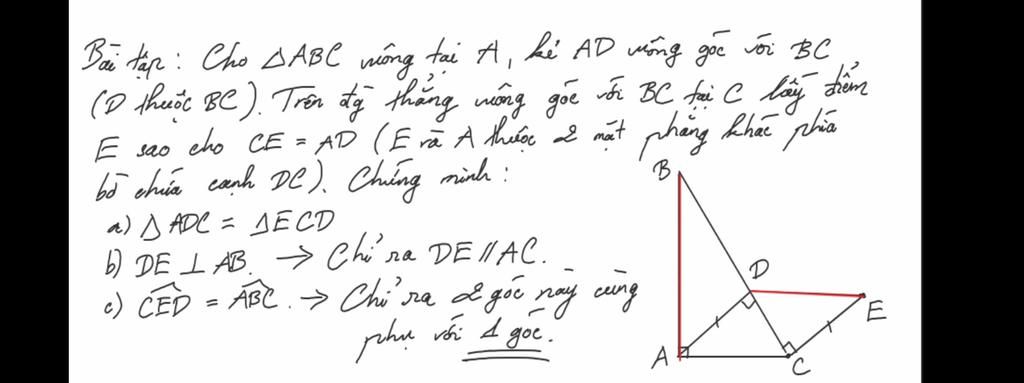 Bài tập: Cho △ABC vuông tại A, kẻ AD vuông góc với BC
(D thuộc BC). Trên đg thẳng vuông góc với BC tại C lấy điểm
E sao cho CE = AD (E và A thuộc 2 mặt phẳng khác phía
bờ chứa cạnh DC). Chứng minh:
a) △ADC = △ECD
b) DE ⊥ AB. → Chỉ ra DE // AC.
c) \widehat{CED} = \widehat{ABC}. → Chỉ ra 2 góc này cùng
phụ với 1 góc.
B
D
E
A
C